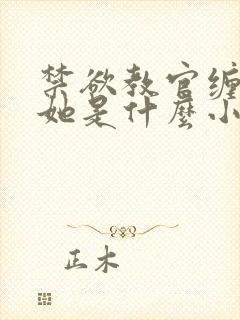 禁欲教官缠
她是什麼小
正木